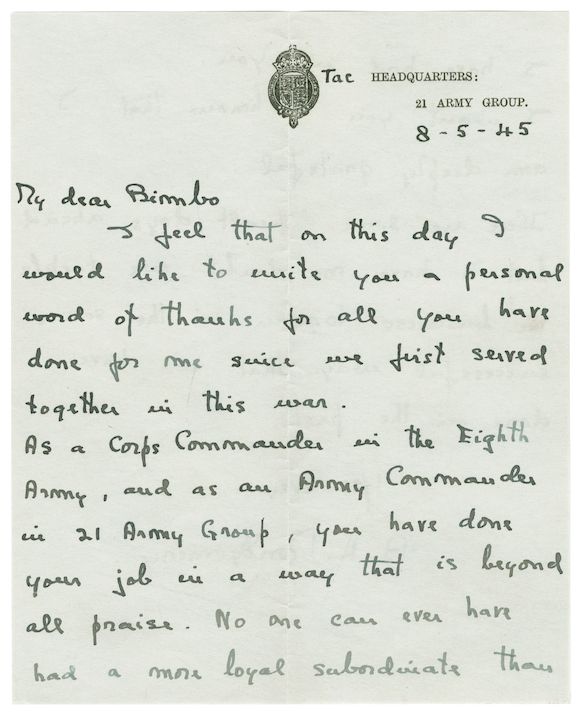 Tac HEADQUARTERS:
21 ARMY GROUP.
8-5-45
My dear Bimbo
I feel that on this day I
would like to write you a personal
word of thanks for all you have
done for me since we first served
together in this war.
As a Corps Commander in the Eighth
Army, and as an Army Commander
in 21 Army Group, you have done
your job in a way that is beyond
all praise. No one can ever have
had a more loyal subordinate than